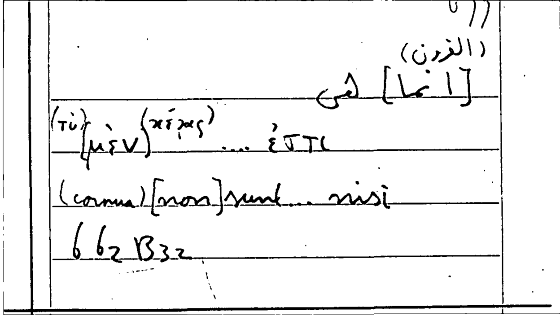 (القرن)
[انما] هي
(τὸ) [μὲν] (κέρας) .... ἐστι
(cornua) [non] sunt ... nisi
662B32